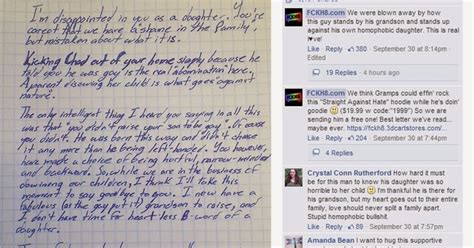 I'm disappointed in you as a daughter. You're
correct that we have a shame in the family,
but mistaken about what it is.
Kicking Chad out of your home simply because he
told you he was gay is the real abomination here.
A parent disowning her child is what goes against
nature.
The only intelligent thing I heard you saying in all this
was that "you didn't raise your son to be gay". Of course
you didn't. He was born this way and didn't choose
it any more than he being left-handed. You however,
have made a choice of being hurtful, narrow-minded
and backward. So, while we are in the business of
disowning our children, I think I'll take this
moment to say goodbye to you. I now have a
fabulous (as the gay put it) grandson to raise, and
I don't have time for heart less B-word of a
daughter.
FCKH8.com We were blown away by how
this guy stands by his grandson and stands up
against his own homophobic daughter. This is real
l♥ve!
Like · Reply · 380 · September 30 at 8:14pm ·
Edited
19 Replies · 4 hours ago
FCKH8.com We think Gramps could effin' rock
this "Straight Against Hate" hoodie while he's doin'
goodie ($19.99 w code "1999") So we are
sending him a free one! Best letter we've read...
maybe ever. https://fckh8.3dcartstores.com/
Like · Reply · 204 · September 30 at 7:44pm ·
Edited
4 Replies
Crystal Conn Rutherford How hard it must
be for this man to know his daughter was so
horrible to her child I'm thankful he is there for
his grandson, but my heart goes out to their entire
family, love should never split a family apart.
Stupid homophobic bullshit.
Like · Reply · 92 · September 30 at 7:57pm
Amanda Bean I want to thank this wonderful